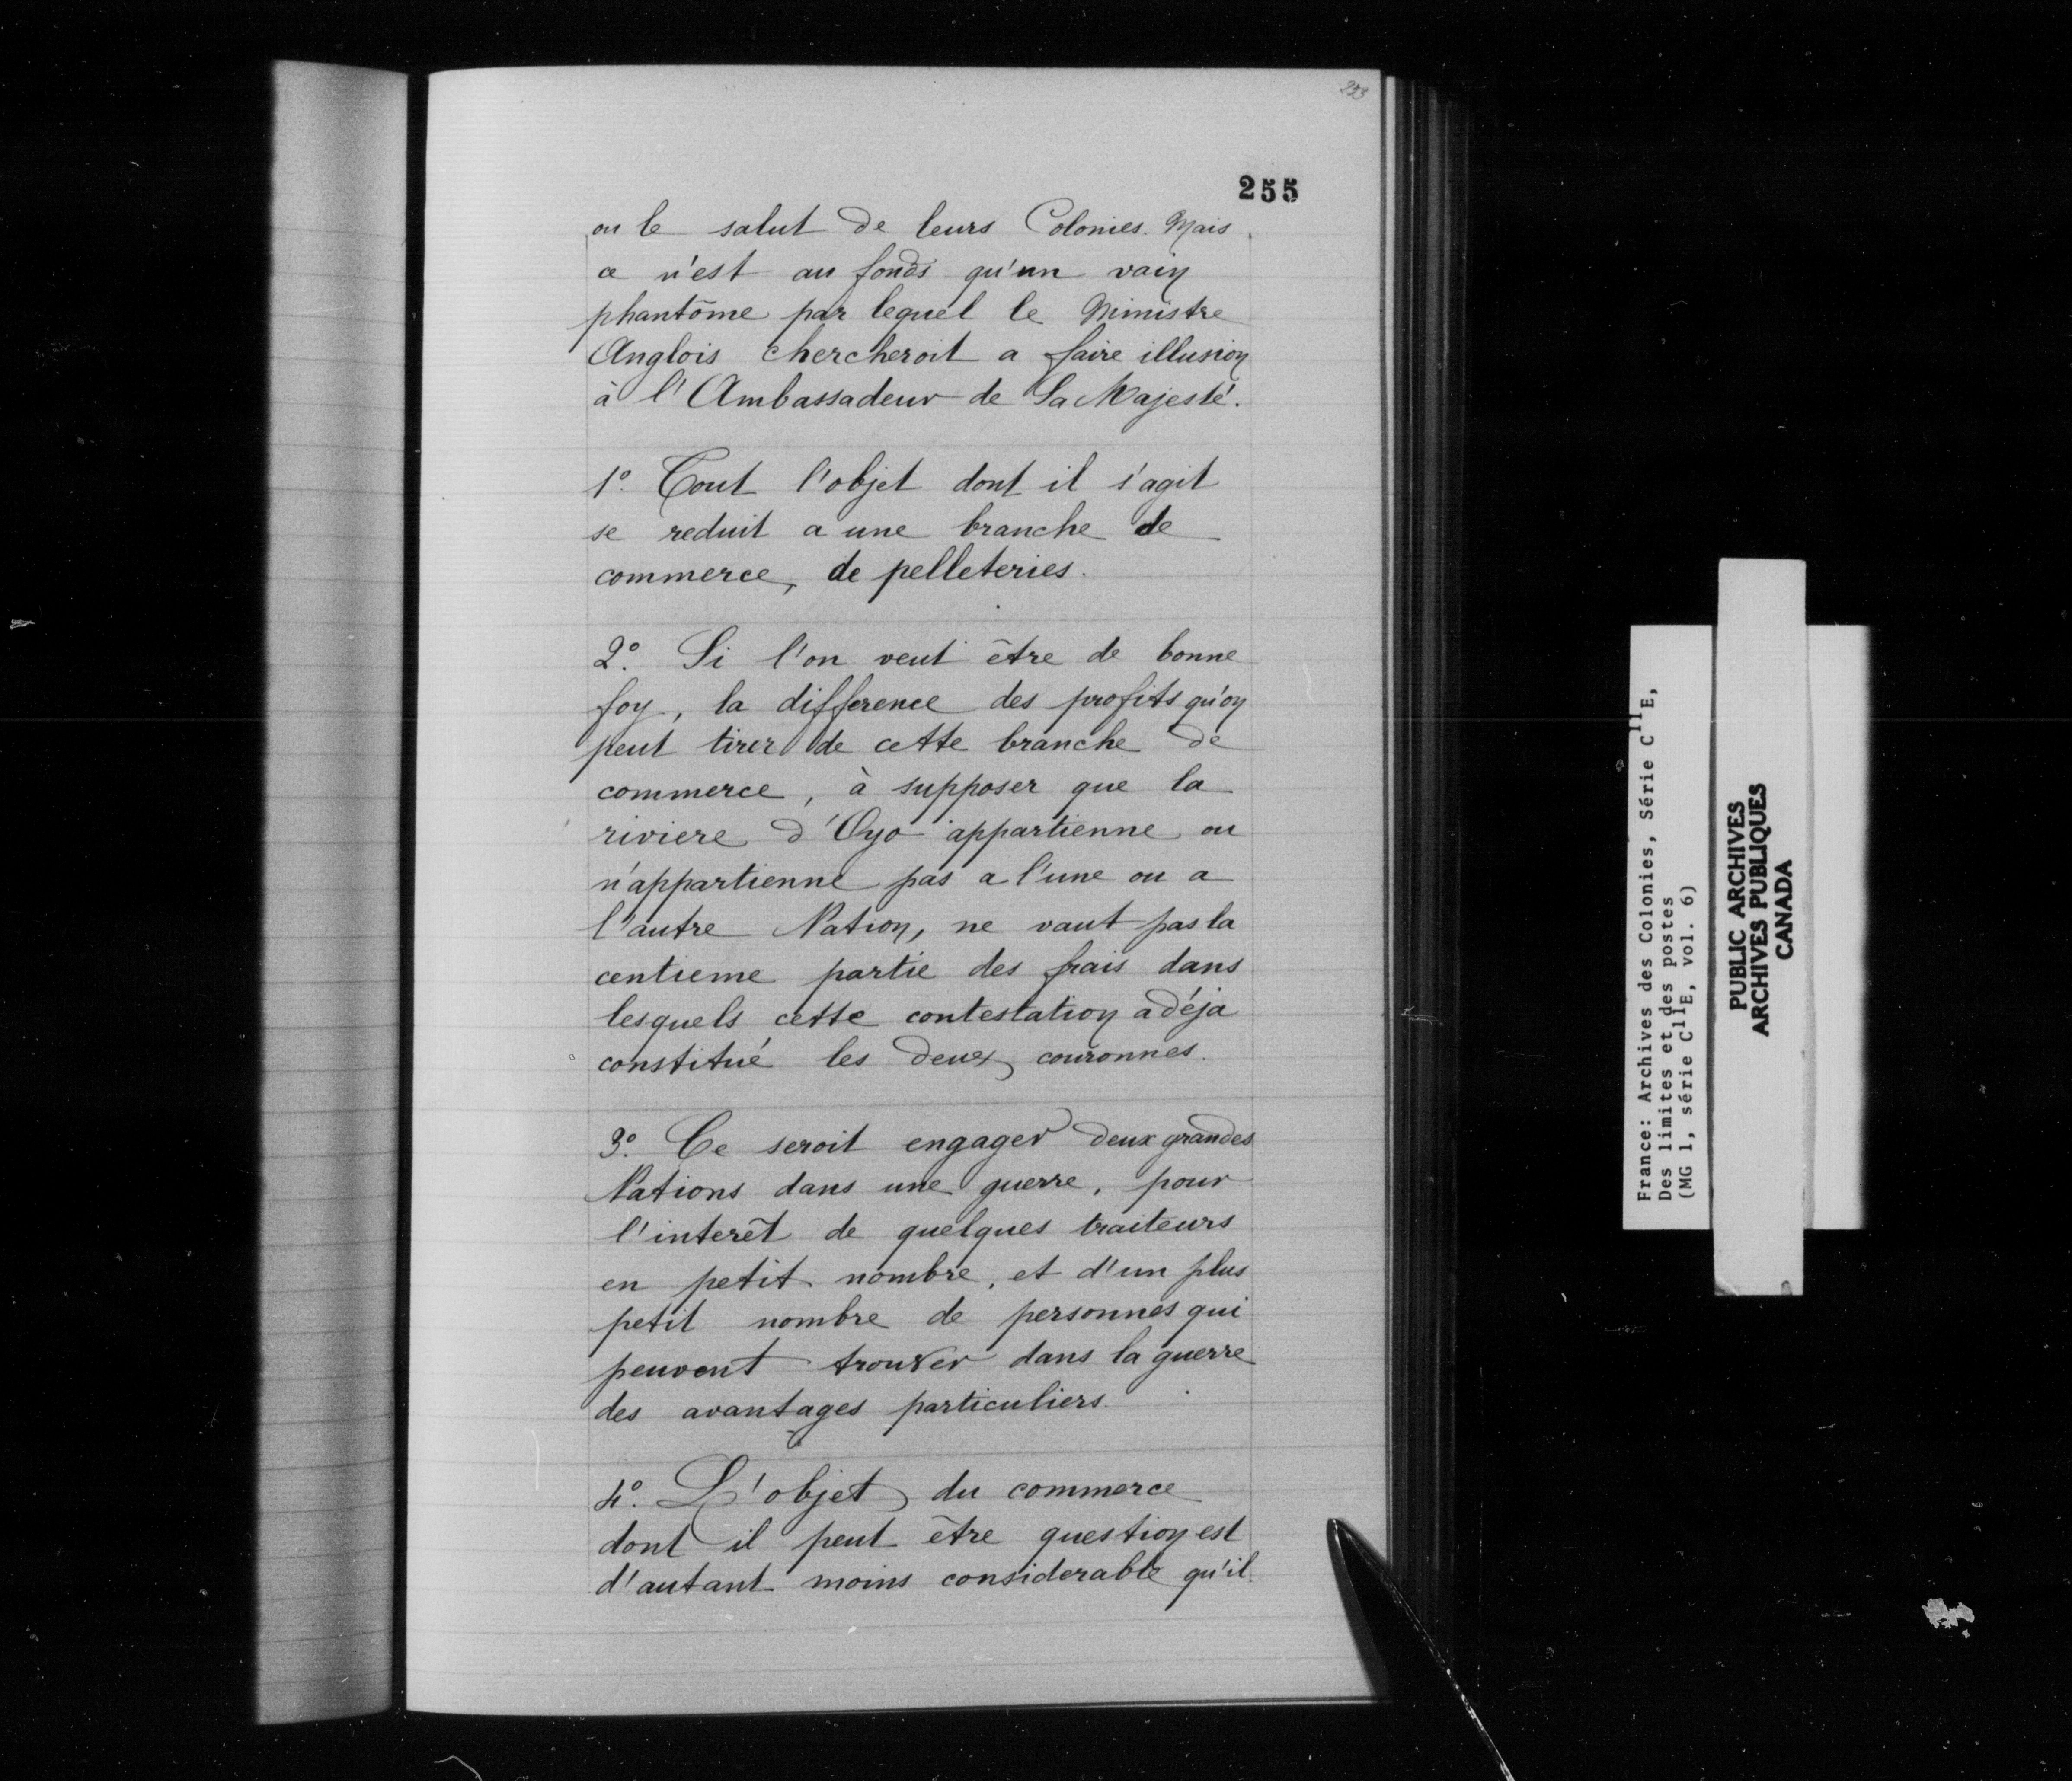 255
ou le salut de leurs Colonies. Mais
ce n'est au fonds qu'un vain
phantôme par lequel le Ministre
Anglois chercheroit a faire illusion
à l'Ambassadeur de Sa Majesté.
1º. Tout l'objet dont il s'agit
se reduit a une branche de
commerce, de pelleteries.
2º. Si l'on veut être de bonne
foy, la difference des profits qu'on
peut tirer de cette branche de
commerce, à supposer que la
riviere d'Oyo appartienne ou
n'appartienne pas a l'une ou a
l'autre Nation, ne vaut pas la
centieme partie des frais dans
lesquels cette contestation a déja
constitué les deux couronnes.
3º. Ce seroit engager deux grandes
Nations dans une guerre, pour
l'interêt de quelques traiteurs
en petit nombre, et d'un plus
petit nombre de personnes qui
peuvent trouver dans la guerre
des avantages particuliers.
4º. L'objet du commerce
dont il peut être question est
d'autant moins considerable qu'il
France: Archives des Colonies, Série C11E,
Des limites et des postes
(MG 1, série C11E, vol. 6)
PUBLIC ARCHIVES
ARCHIVES PUBLIQUES
CANADA